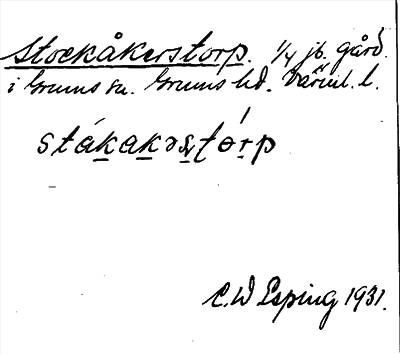 Stockåkerstorp. 1/4 jb. gård.
i Grums sn. Grums hd. Värml. l.
stákakəstó̱rp
C. W Esping 1931.